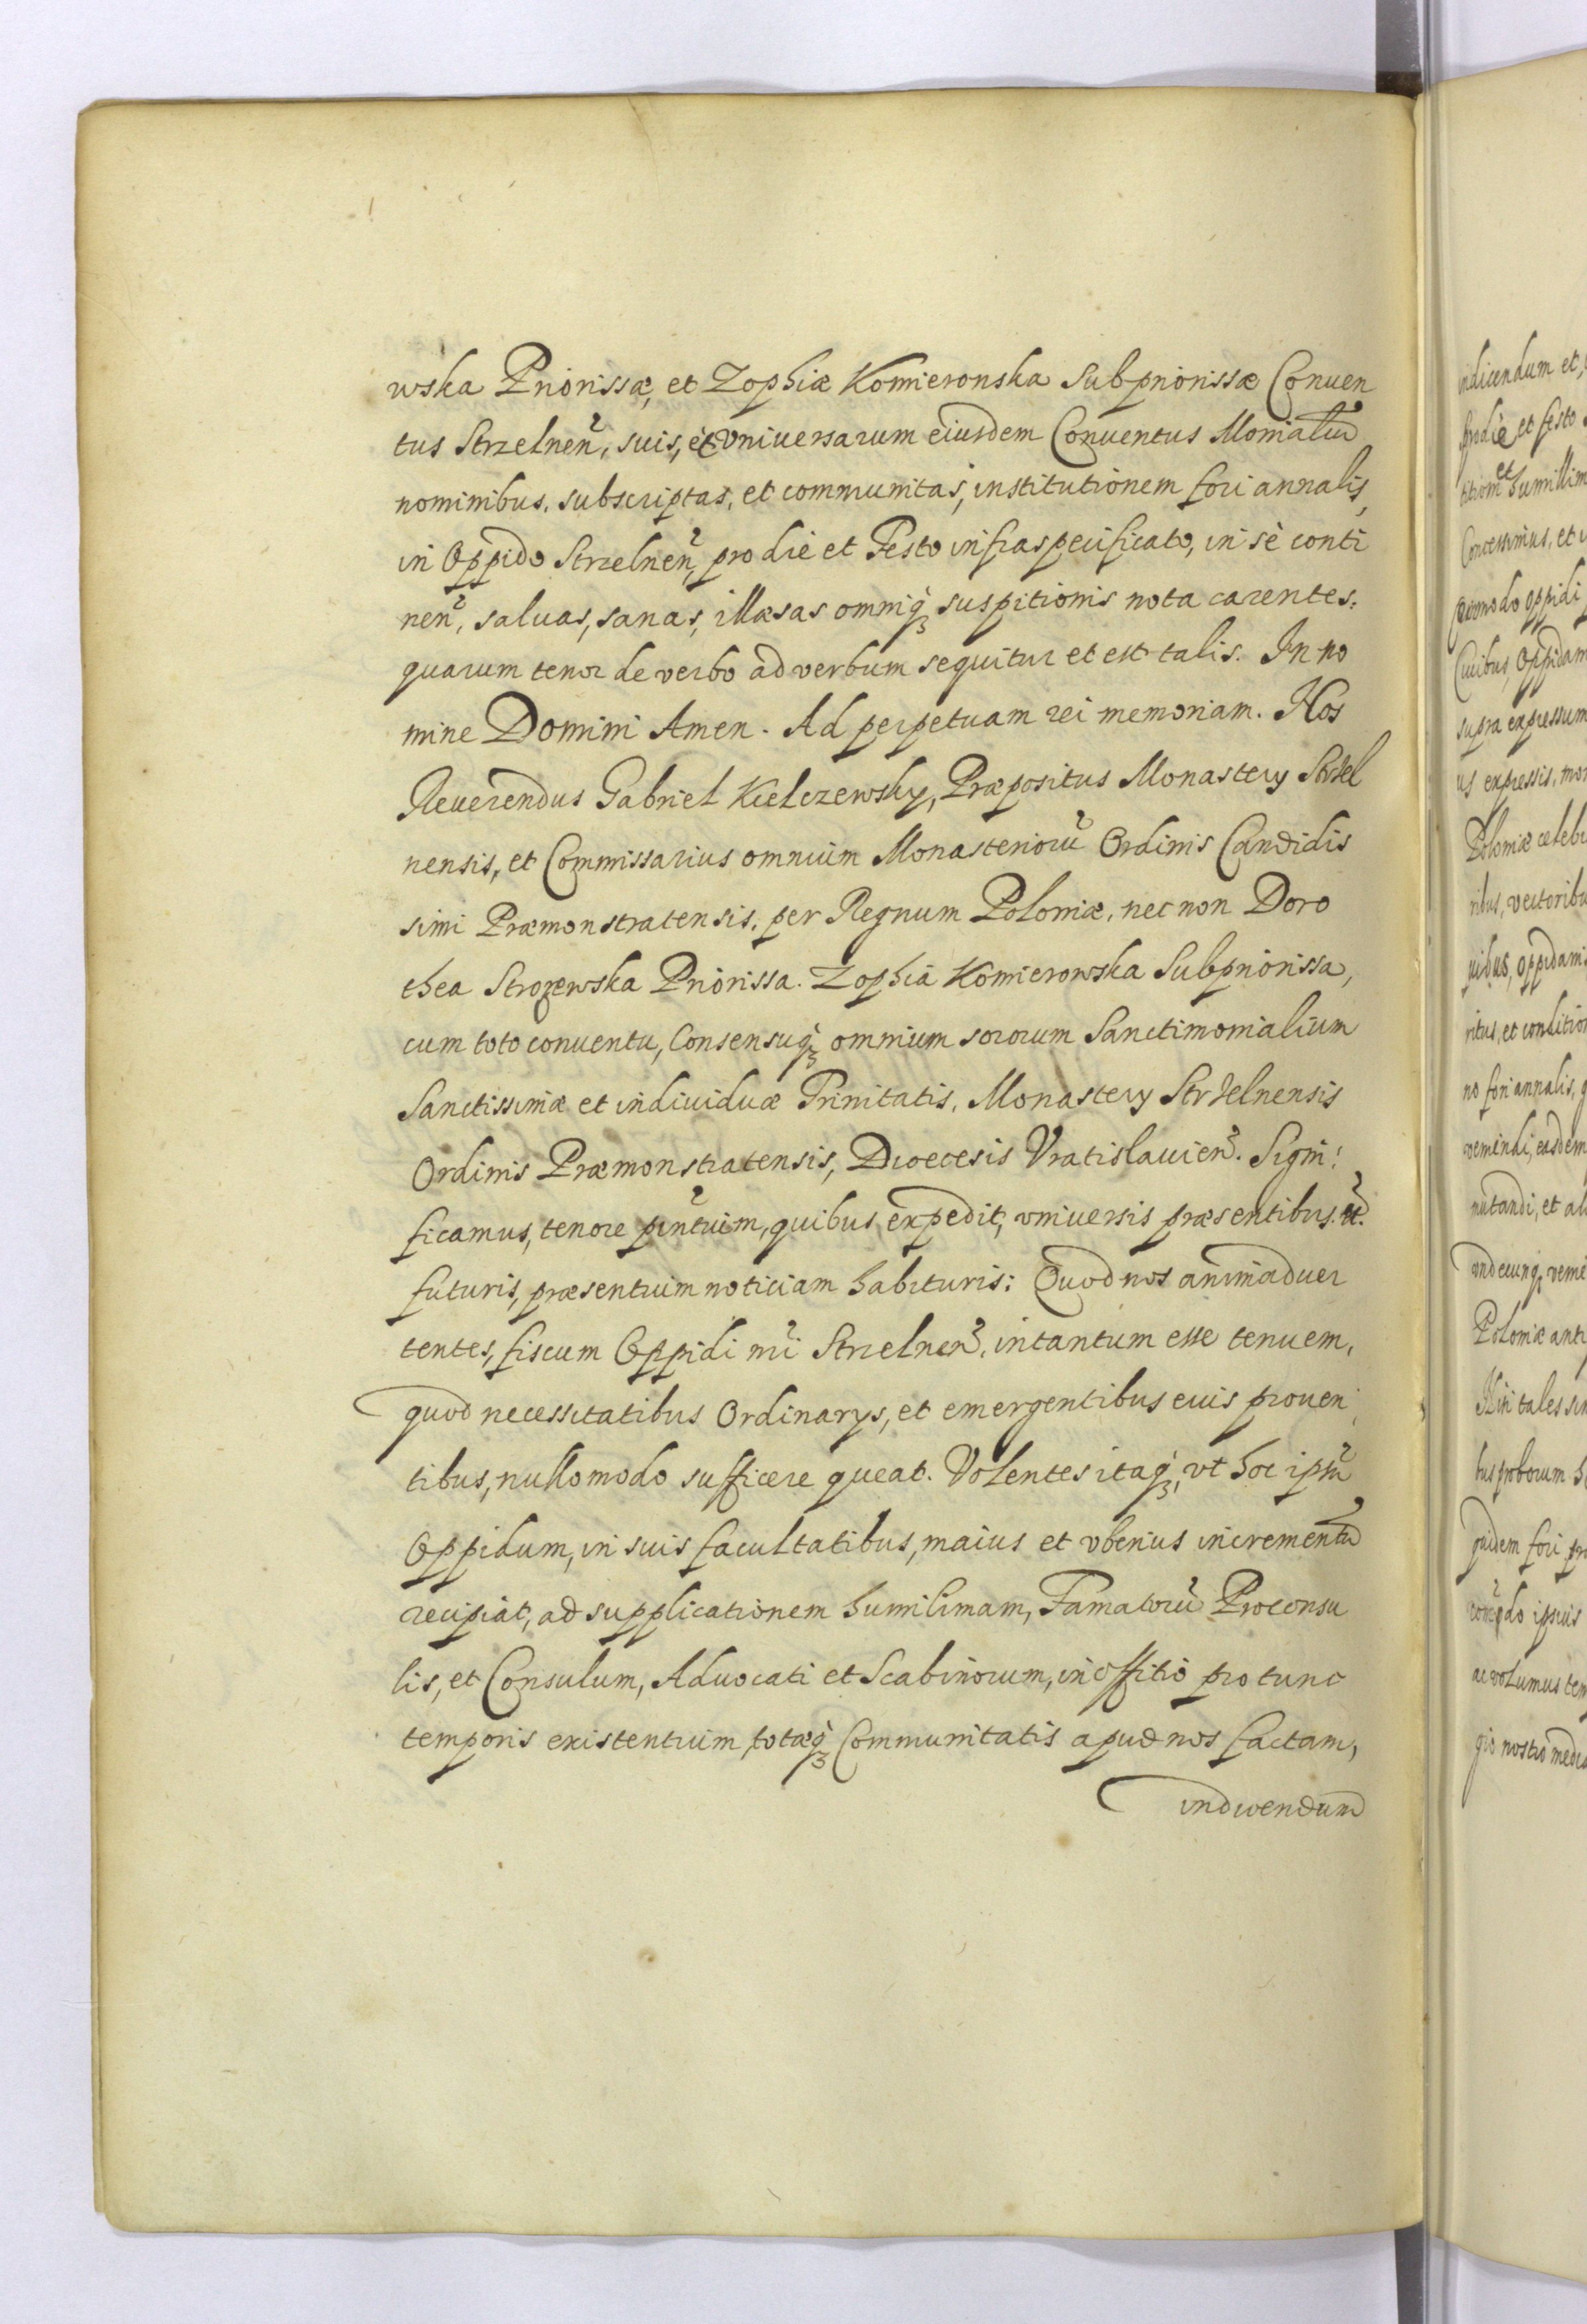 wska Priorissæ, et Zophiæ Komieronska Subpriorissæ Conuen
tus Strzelneñ, suis, et vniuersarum eiusdem Conuentus Monialiũ
nominibus, subscriptas, et communitas, institutionem fori annalis,
in Oppido Strzelneñ, pro die et Festo infraspecificato, in sè conti
neñ, saluas, sanas, illæsas omniq3 suspitionis nota carentes.
quarum tenor de verbo ad verbum sequitur et est talis. In no
mine Domini Amen. Ad perpetuam rei memoriam. Nos
Reuerendus Gabriel Kielczewsky, Præpositus Monastery Strzel
nensis, et Commissarius omnium Monasteriorũ Ordinis Candidis
simi Præmonstratensis, per Regnum Poloniæ, nec non Doro
thea Strozewska Priorissa. Zophia Komierowska Subpriorissa,
cum toto conuentu, Consensuq3 omnium sororum Sanctimonialium
Sanctissimæ et indiuiduæ Trinitatis, Monastery Strzelnensis
Ordinis Præmonstratensis, Dioecesis Vratislauieñ. Signi:
ficamus, tenore pñtium, quibus expedit, vniuersis præsentibus et
futuris, præsentium noticiam habituris: Quod nos animaduer
tentes, fiscum Oppidi nri Strzelneñ, intantum esse tenuem,
quod necessitatibus Ordinarys, et emergentibus euis prouen
tibus, nullo modo sufficere queat. Volentes itaq3, vt hoc ipsũ
Oppidum, in suis facultatibus, maius et vberius incrementũ
recipiat, ad supplicationem humilimam, Famatorũ Proconsu
lis, et Consulum, Aduocati et Scabinorum, in offitio pro tunc
temporis existentium, totæq3 Communitatis apud nos factam,
indicendum
indicendum et,
prodie et festo
et humillim
Concessimus, et
oppidi
Ciuibus, Oppidam
supra expressum
us expressis, mo
Poloniæ celebr
ribus, vectoribu
oppidani
ritus, et condition
no fori annalis, q
vemendi, easdem
mutandi, et al
vndecunq3 veni
Poloniæ anti
Nisi tales sin
tus proborum h
quidem fori pr
ipsius
ac volumus tem
gio nostro media